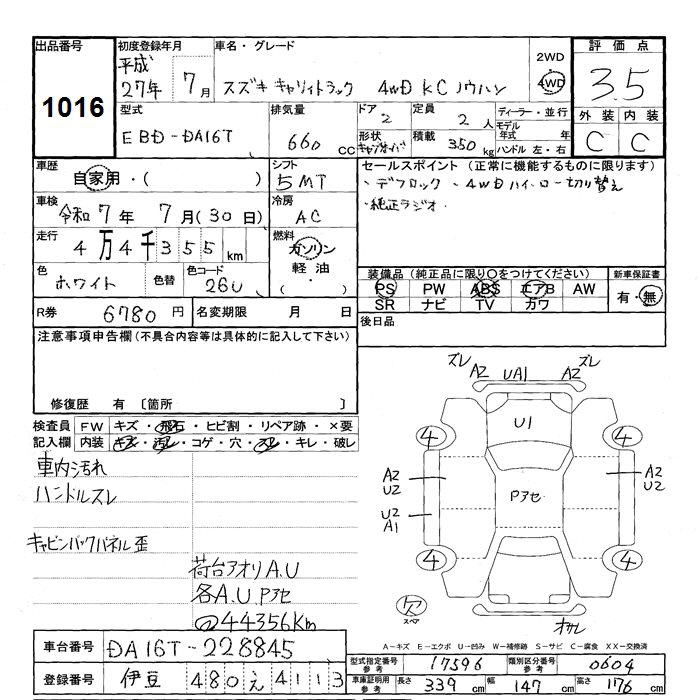 出品番号
1016
初度登録年月
平成
27年 7月
車名・グレード
スズキ キャリィトラック 4WD KC ノウハン
2WD
4WD
評価点
3.5
型式
EBD-DA16T
排気量
660 CC
ドア
2
定員
2 人
ディーラー・並行
モデル
年式 年
ハンドル 左・右
形状
積載
350 kg
外装 内装
C C
車歴
自家用・( )
シフト
5MT
セールスポイント (正常に機能するものに限ります)
・デフロック ・4WDハイ・ロー切り替え
・純正ラジオ
車検
令和7年 7月(30日)
冷房
AC
走行
4万4千355km
燃料
ガソリン
軽油
・( )
色
ホワイト
色替
色コード
26U
装備品 (純正品に限り○をつけてください)
新車保証書
PS PW ABS エアB AW
SR ナビ TV カワ
有・無
R券
6780円
名変期限 月 日
後日品
注意事項申告欄(不具合内容等は具体的に記入して下さい)
修復歴 有 〔箇所 〕
検査員
記入欄
FW キズ・飛石・ヒビ割・リペア跡・×要
内装 キズ・汚レ・コゲ・穴・スレ・キレ・破レ
車内汚れ
ハンドルスレ
キャビンバックパネル歪
荷台アオリA.U
各A.U Pアセ
@44356Km
ズレ A2 UA1 A2 ズレ
U1
4 4
A2
U2
Pアセ
A2
U2
U2
A1
4 4
欠
スペア
オカレ
A-キズ E-エクボ U-凹み W-補修跡 S-サビ C-腐食 XX-交換済
車台番号
DA16T-228845
登録番号
伊豆 480 え 4113
型式指定番号
参考
17596
類別区分番号
参考
0604
車庫証明用
参考
長さ 339 cm
幅 147 cm
高さ 176 cm